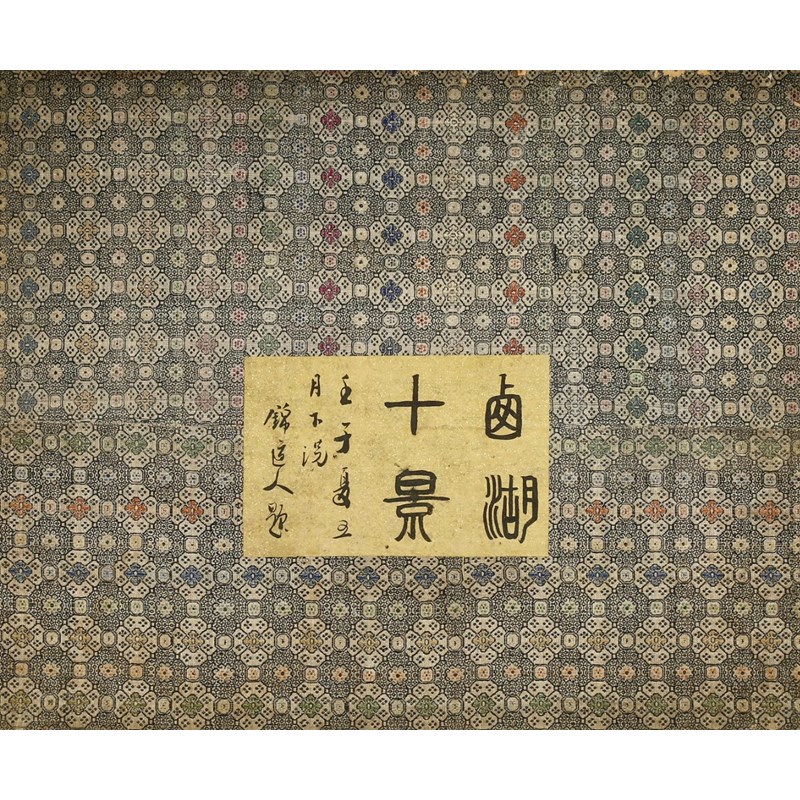 西湖
十景
壬子夏五
月下浣
錦 人題